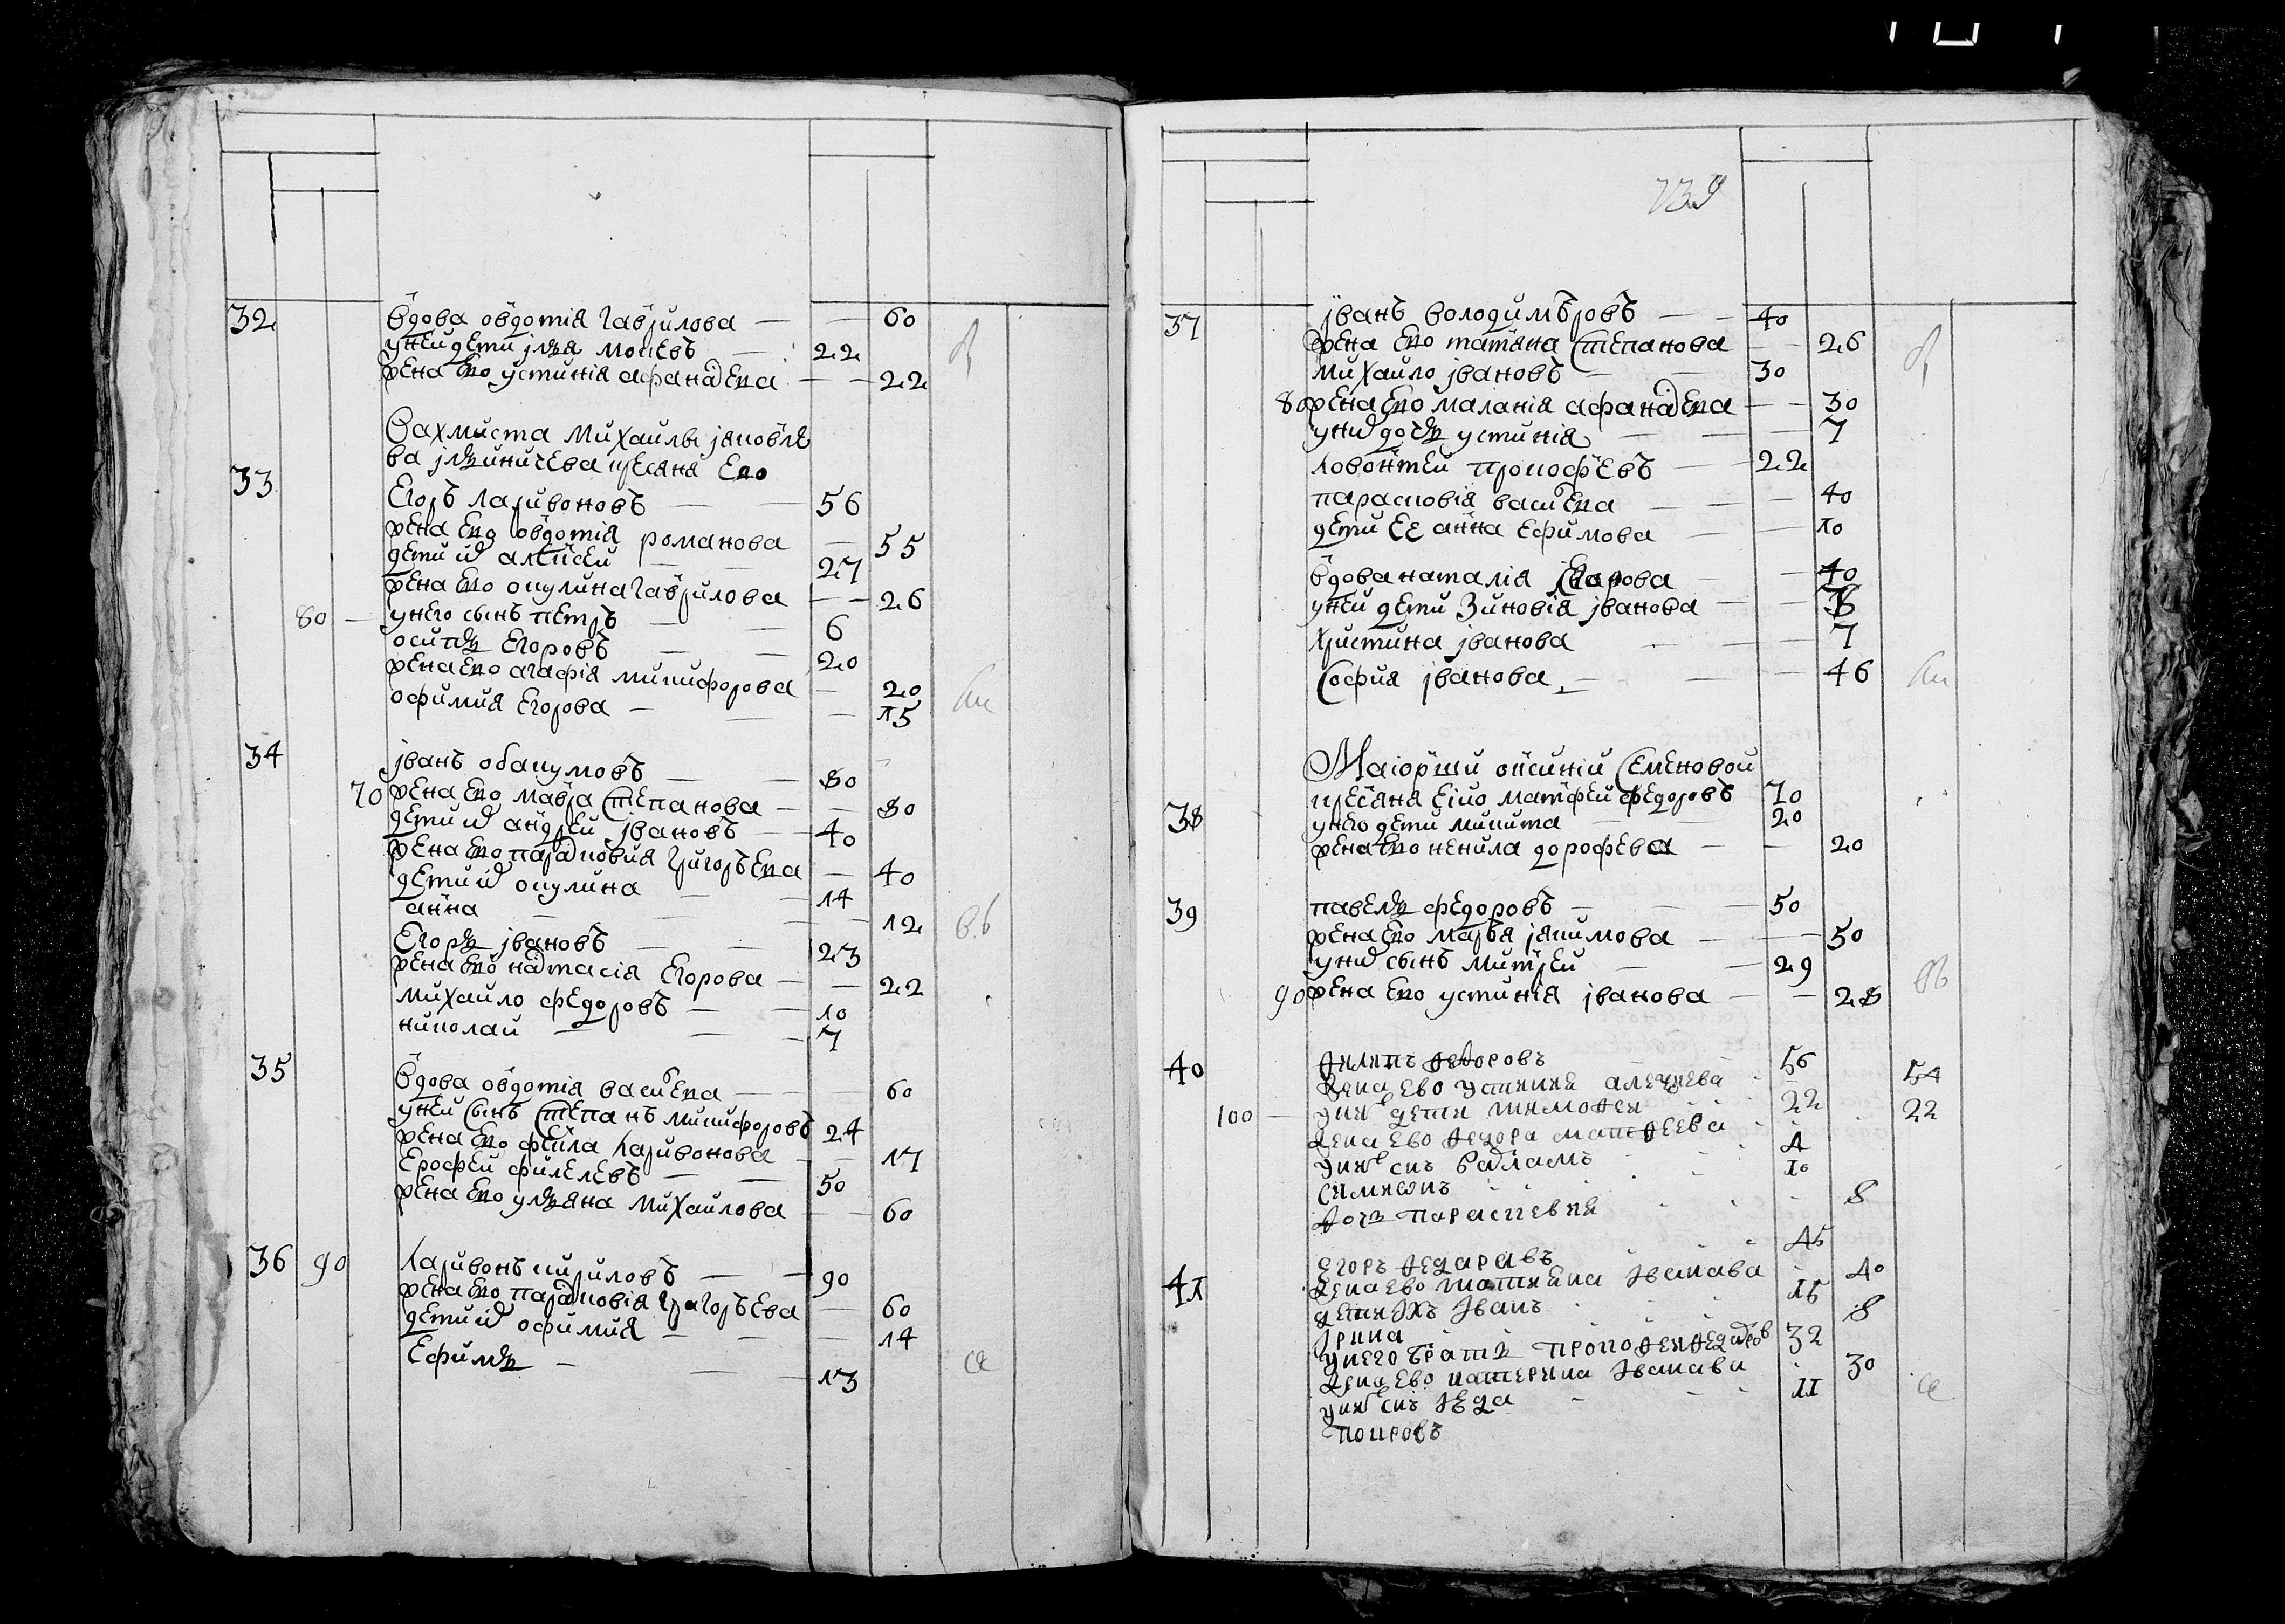 32 вдова овдотия гаврилова — — 60
уней дети илья моисевъ — 22
жена ево устиния афанасева — — 22
вахмиста михаилы яковле
ва ильиничева кресяня ево
33
Егоръ ларивоновъ — — 56
жена ево овдотия романова — 55
дети их алексей — — 27
жена ево окулина гаврилова — — 26
80 — унего сынъ петръ — — 6
осипъ Егоровъ — — 20
жена ево агафия микифорова — 20
офимия Егорова — — — 15
34 иванъ обакумовъ — — 80
70 жена ево мавра степанова — — 80
дети их андрей ивановъ — 40
жена ево парасковия григорьева — 40
дети их окулина — — 14
анна — — — 12
Егоръ ивановъ — — 23
жена ево настасия Егорова — — 22
михайло федоровъ — — 10
николай — — — 7
35 вдова овдотия васильева — — 60
уней сынъ степанъ микифоровъ 24
жена ево фекла ларивонова — — 17
Ерофей филелевъ — — 50
жена ево ульяна михайлова — — 60
36 90 ларивонъ кириловъ — — 90
жена ево парасковия григорьева — 60
дети их офимия — — — 14
Ефимъ — — 13
739
37 иванъ володимѣровъ — — 40
жена ево татяна степанова — — 26
михайло ивановъ — — 30
80 жена ево малания афанасева — — 30
уних дочь устиния — — — 7
ловонтей прокофьевъ — — 22
парасковия васильева — — 40
дети ее анна ефимова — — 10
вдова наталия — — 40
уней дети зиновия иванова — —
христина иванова — — — 7
софия иванова — — — 46
Маиорши оксинии семеновои
кресяня еиио матфей федоровъ 70
38 унего дети микита — — 20
жена ево ненила дорофева — — 20
39 павелъ федоровъ — — 50
жена ево марья якимова — — 50
уних сынъ митрей — — 29
90 жена ево устиния иванова — — 28
40 филипъ федоровъ 56
жена ево устиния алекѣева 54
100 — уних дети тимофей 22
жена ево федора матфеева 22
уних снъ варламъ 4
симионъ 10
дочь парасковия 8
егоръ федаравъ 45
41 жена ево татияна иванава 40
дети ихъ иванъ 15
ирина 8
унего братъ прокофей федоров 32
жена ево катерина иванава 30
уних снъ феда 11
покровъ